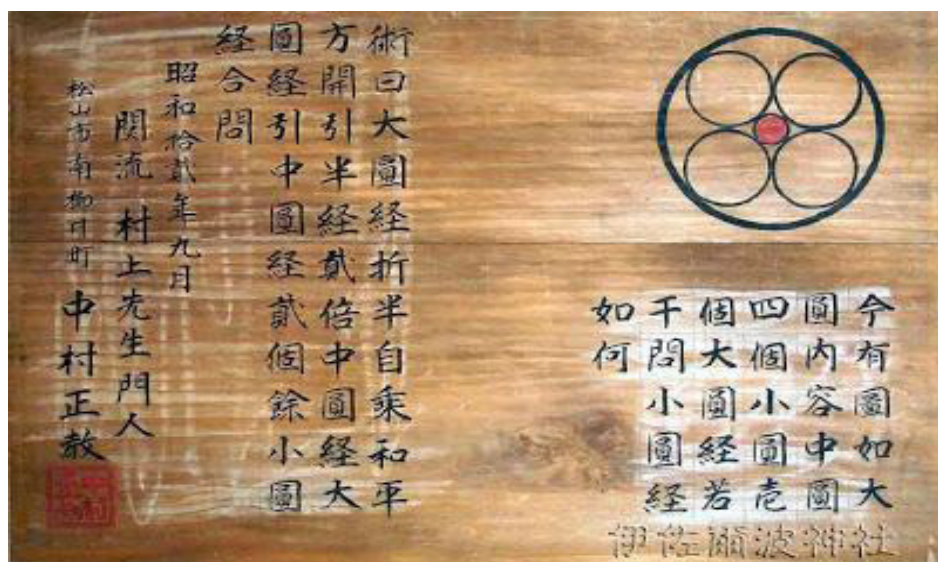 今有圖如大
圓内容中圓
四個小圓壱
個大圓経若
干問小圓経
如何
術曰大圓経折半自乗和平
方開引半経貳倍中圓経大
圓経引中圓経貳個餘小圓
経合問
昭和拾貳年九月
関流村上先生門人
松山市南柳井町中村正教
伊佐爾波神社